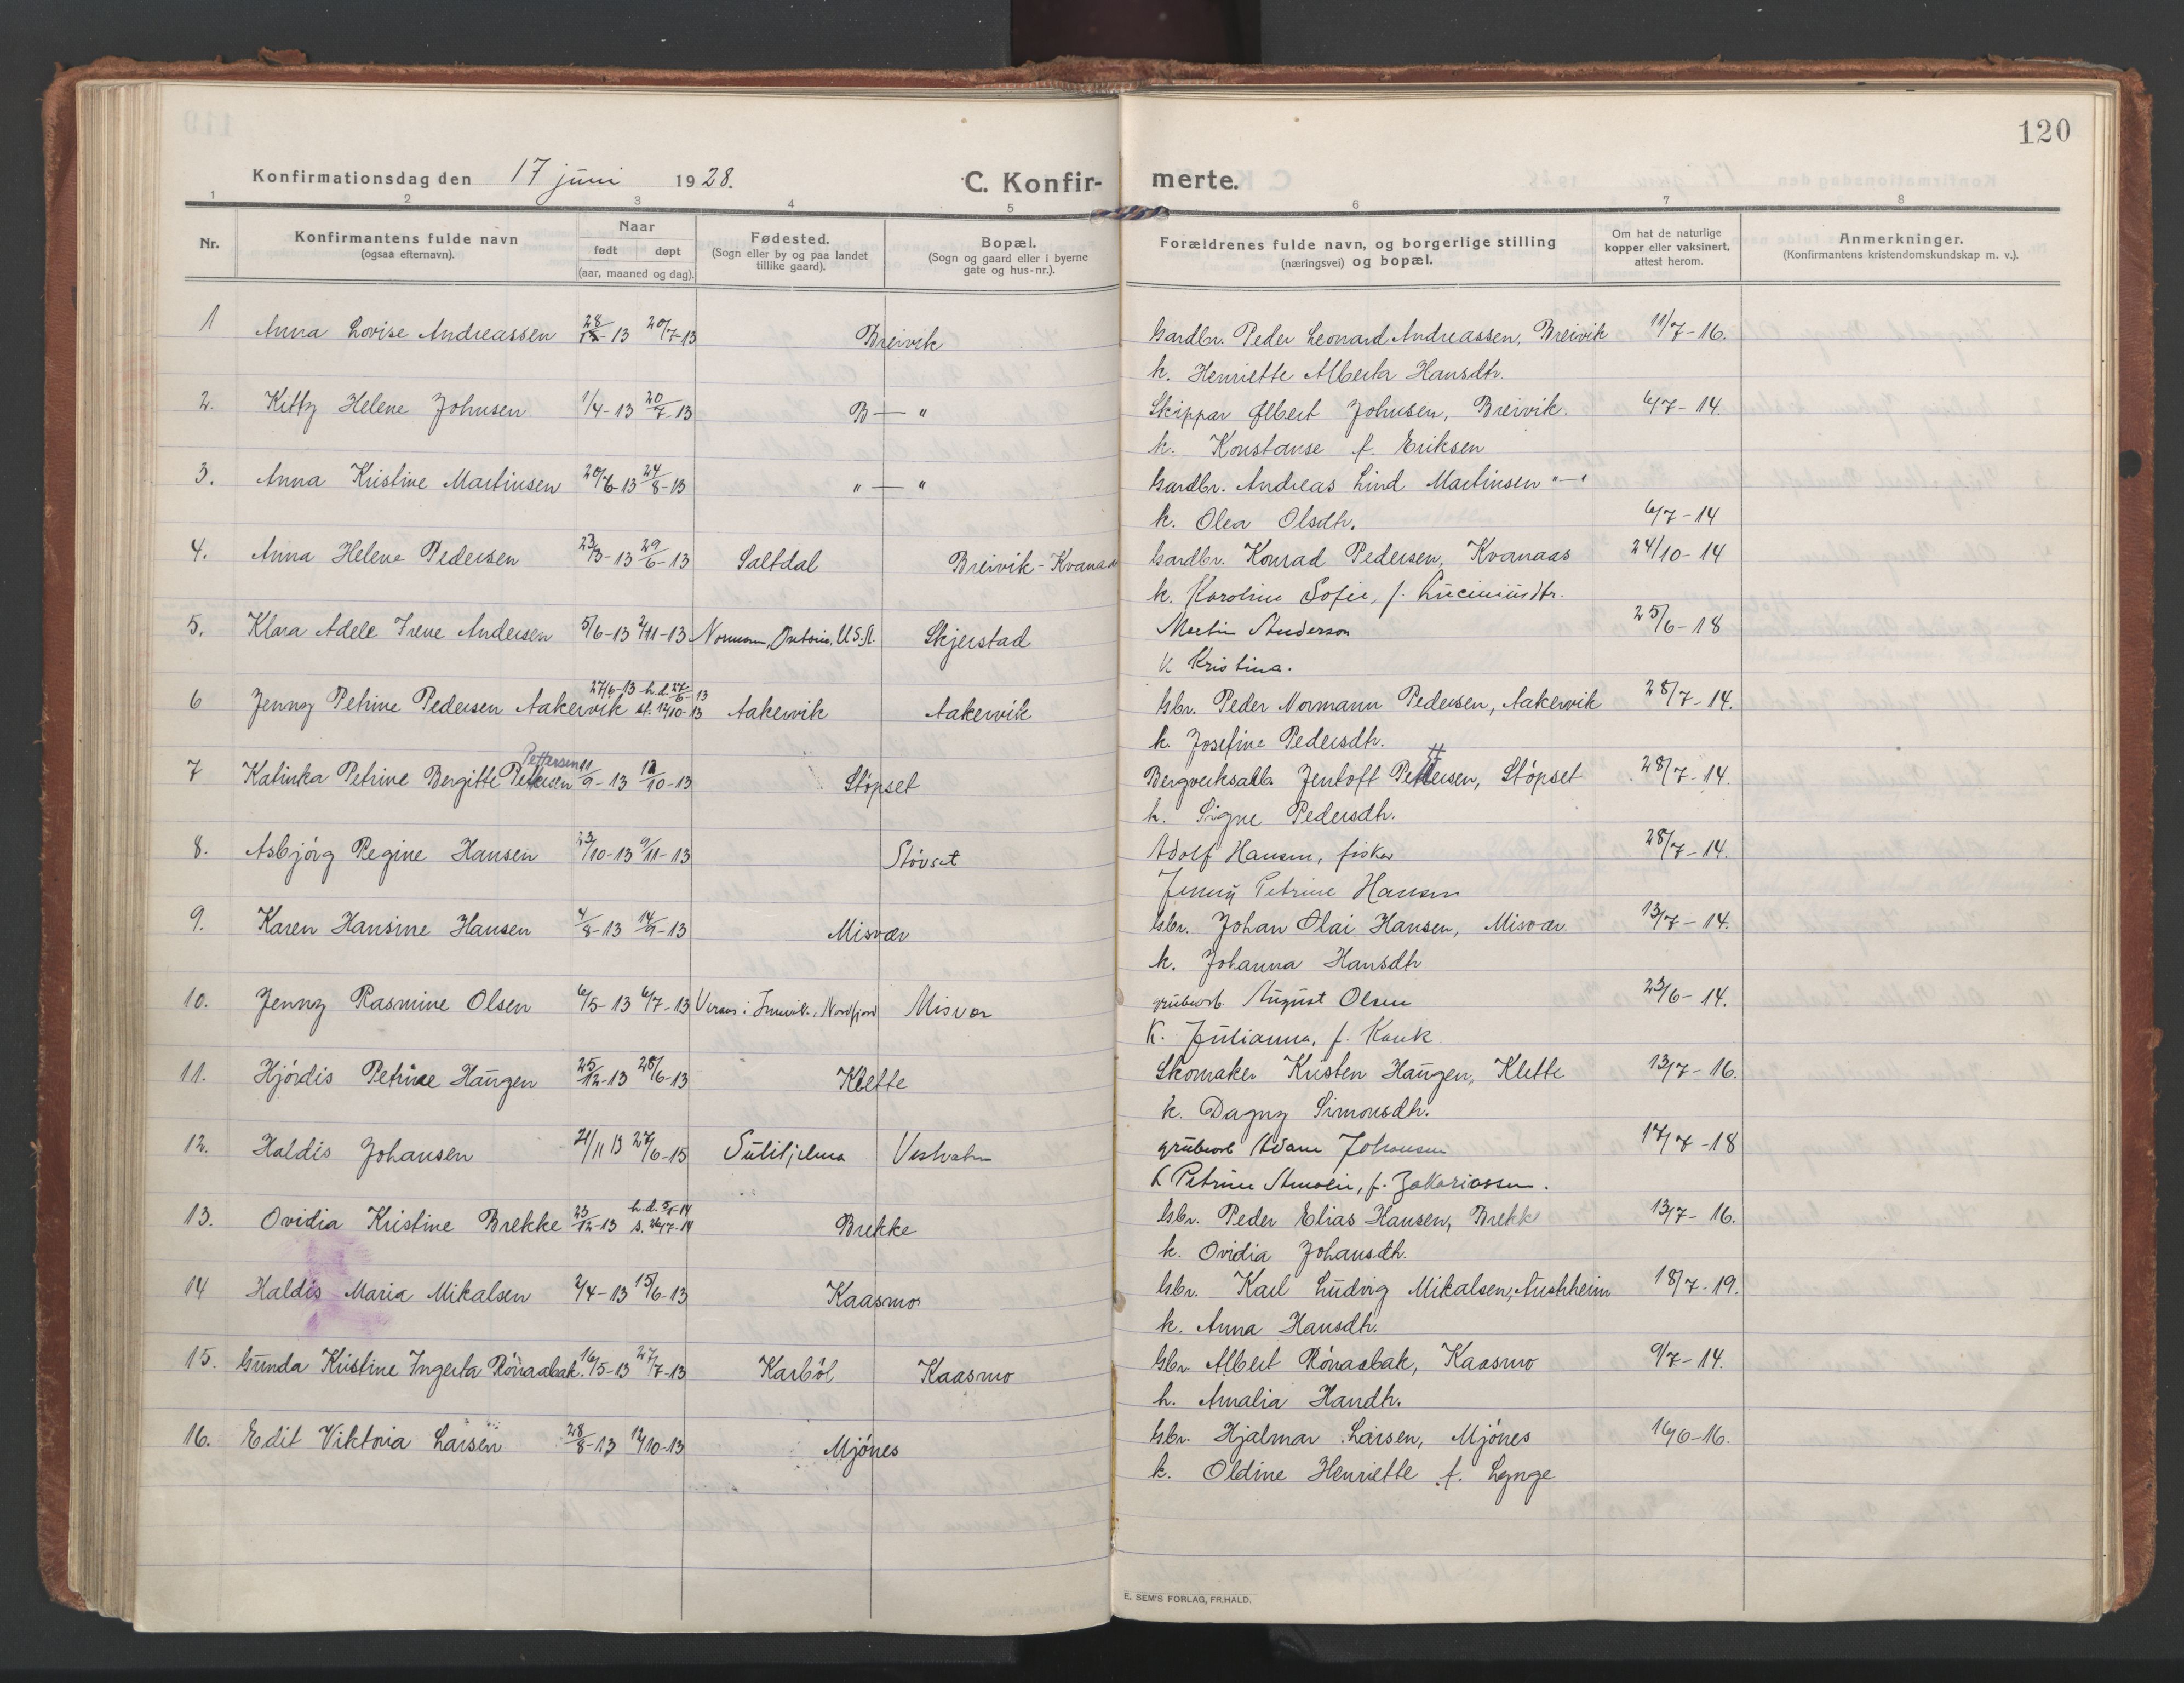 120
Konfirmationsdag den 17 juni 1928.
C. Konfir- merte.
1 2 3 4 5 6 7 8
Nr.
Konfirmantens fulde navn
(ogsaa efternavn).
Naar
født døpt
(aar, maaned og dag).
Fødested.
(Sogn eller by og paa landet
tillike gaard).
Bopæl.
(Sogn og gaard eller i byerne
gate og hus-nr.).
Forældrenes fulde navn, og borgerlige stilling
(næringsvei) og bopæl.
Om hat de naturlige
kopper eller vaksinert,
attest herom.
Anmerkninger.
(Konfirmantens kristendomskundskap m. v.).
1 Anna Lovise Andreassen 28/ -13 20/7-13 Breivik Gardbr. Peder Leonard Andreassen, Breivik 11/7-16.
k. Henriette Alberta Hansdtr.
2. Kitty Helene Johnsen 1/4-13 20/7-13 B — " Skippar Albert Johnsen, Breivik. 6/7-14.
k. Konstanse f. Eriksen
3. Anna Kristine Martinsen 20/6-13 24/8-13 " — " Gardbr. Andreas Lind Martinsen "—"
k. Olea Olsdtr. 6/7-14
4. Anna Helene Pedersen 23/3-13 29/6-13 Saltdal Breivik-Kvanaas Gardbr. Konrad Pedersen, Kvanaas 24/10-14
k. Karoline Sofie, f.
5. Klara Adele Irene Andersen 5/6-13 2/11-13 Norman, Ontario, U.S.A. Skjerstad Martin Anderson 25/6-18
k Kristina.
27/6-13 h.d. 27/6-13
6 Jenny Petrine Pedersen Aakervik st. 12/10-13 Aakervik Aakervik Gbr. Peder Normann Pedersen, Aakervik 28/7-14.
k. Josefine Pedersdtr.
Pettersen tt
7 Katinka Petrine Bergitte Pettersen 11/9-13 12/10-13 Støpset Bergverksarb. Jentoft Pettersen, Støpset 28/7-14.
k. Signe Pedersdtr.
8. Asbjørg Regine Hansen 23/10-13 9/11-13 Støvset Adolf Hansen, fisker 28/7-14.
Jenny Petrine Hansen
9. Karen Hansine Hansen 4/8-13 14/9-13 Misvær Gbr. Johan Olai Hansen, Misvær 13/7-14.
k. Johanna Hansdtr
10. Jenny Rasmine Olsen 6/5-13 6/7-13 i Innvik, Nordfjord Misvær grubearb. August Olsen 23/6-14.
K. Julianna, f. Kouk
11. Hjørdis Petrine Haugen 25/12-13 28/6-13 Klette Skomaker Kristen Haugen, Klette 13/7-16.
k. Dagny Simonsdtr.
12. Haldis Johansen 21/11 13 27/6-15 Sulitjelma Vestvatn grubearb Adam Johansen 17/7-18
k Petrine Amalie, f. Zakariassen.
h.d. -14
13. Ovidia Kristine Brekke 23/12-13 s. 26/7-14 Brekke Gbr. Peder Elias Hansen, Brekke 13/7-16.
k. Ovidia Johansdtr.
14 Haldis Maria Mikalsen 2/4-13 15/6-13 Kaasmo Gbr. Karl Ludvig Mikalsen, Austheim 18/7-19.
k. Anna Hansdtr.
15. Gunda Kristine Ingerta Rønaabak. 16/5-13 27/7-13 Karbøl Kaasmo Gbr. Albert Rønaabak, Kaasmo 9/7-14.
h. Amalia Handtr.
16. Edit Viktoria Larsen 28/8-13 12/10-13 Mjønes Gbr. Hjalmar Larsen, Mjønes 16/6-16.
k. Oldine Henriette f. Lynge
E. SEM'S FORLAG, FR.HALD.